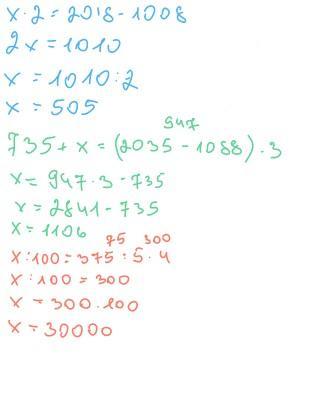 x·2=2018-1008
2x=1010
x=1010:2
x=505
947
735+x=(2035-1088)·3
x=947·3-735
x=2841-735
x=1106
75 300
x:100=375:5·4
x:100=300
x=300·100
x=30000